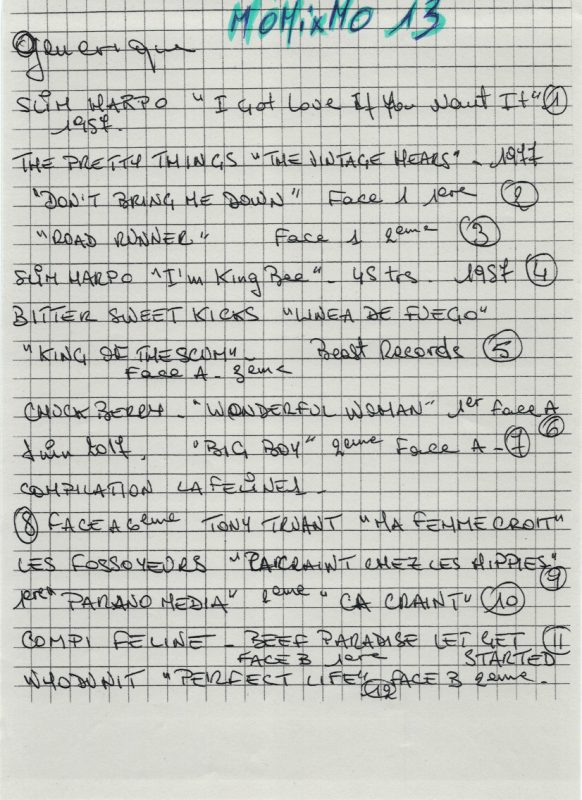 MOMixMO 13
Generique
SLIM HARPO "I Got Love If You Want It" 1
1957.
THE PRETTY THINGS "THE VINTAGE YEARS" - 1977
"DON'T BRING ME DOWN" Face 1 1ere 2
"ROAD RUNNER" Face 1 2eme 3
SLIM HARPO "I'm King Bee" - 45 trs. 1957 4
BITTER SWEET KICKS "LINEA DE FUEGO"
"KING OF THE SCUM" - Beast Records 5
Face A - 3eme
CHUCK BERRY - "WONDERFUL WOMAN" 1er Face A
6
Juin 2017, "BIG BOY" 2eme Face A - 7
COMPILATION LA FELINE 1 -
8 FACE A 6eme TONY TRUANT "MA FEMME CROIT"
LES FOSSOYEURS "PARCRAINT CHEZ LES HIPPIES"
9
1ere "PARANO MEDIA" 2eme "CA CRAINT" 10
COMPI FELINE - BEEF PARADISE LET GET 11
FACE B 1ere STARTED
WHODUNIT "PERFECT LIFE" 12 FACE B 2eme.